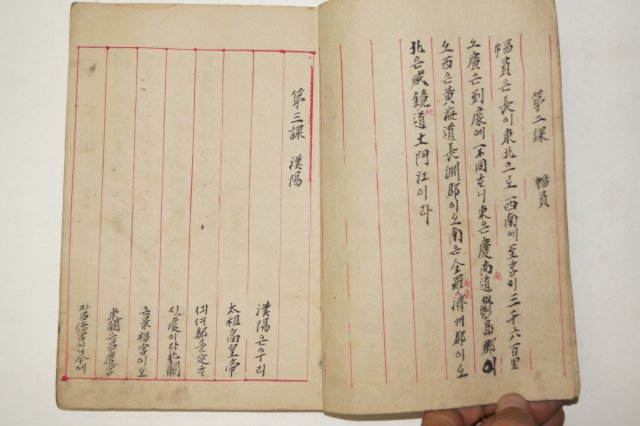 第二課 幅員
幅員은 長이 東北으로 西南에 至ᄒᆞ이 三千六百里
오 廣은 到處에 不同ᄒᆞ니 東은 慶尙道 鬱島郡이
오 西은 黃海道 長淵郡이오 南은 全羅南道 濟州郡이오
北은 咸鏡北道 土門江이라
第三課 漢陽
漢陽은 우리
太祖高皇帝
都를 定ᄒᆞ
이라 北闕
은 景福宮이오
東闕은 昌慶宮